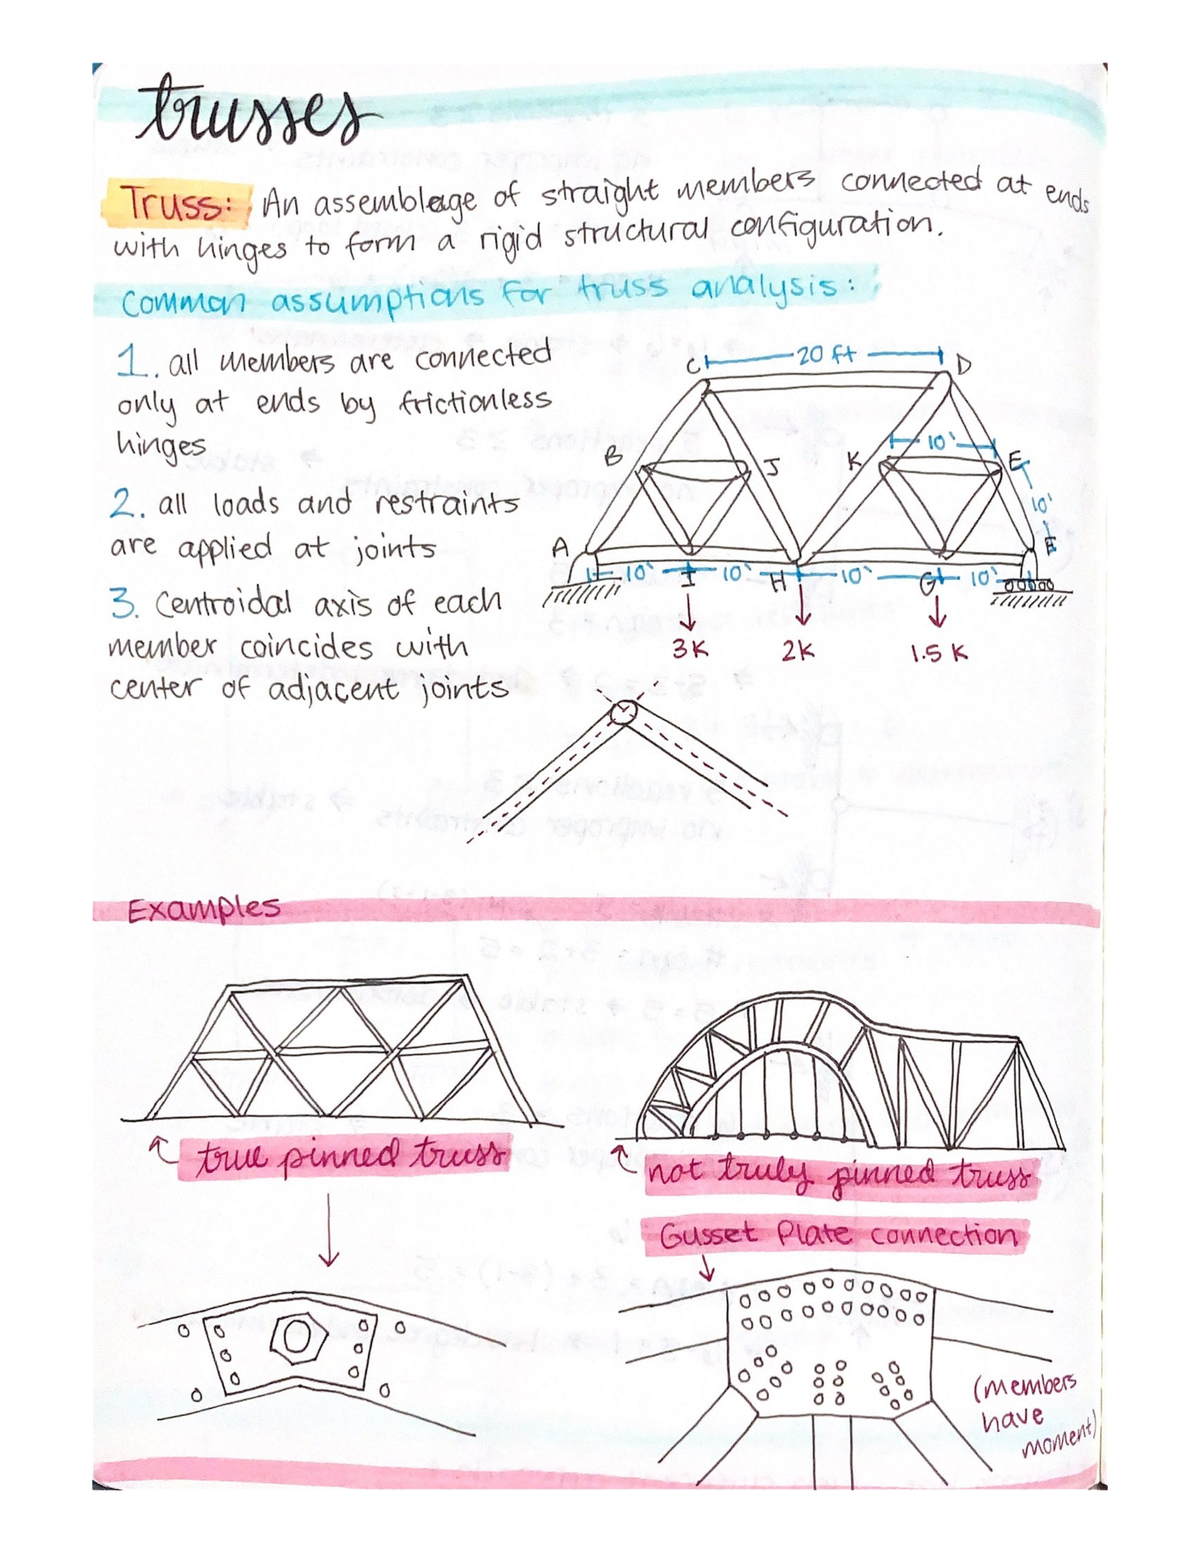 trusses
Truss: An assemblage of straight members connected at ends
with hinges to form a rigid structural configuration.
Common assumptions for truss analysis:
1. all members are connected
only at ends by frictionless
hinges
2. all loads and restraints
are applied at joints
3. Centroidal axis of each
member coincides with
center of adjacent joints
C 20 ft D
B J K 10' E
10'
A E
10' I 10' H 10' G 10'
3K 2K 1.5 K
Examples
true pinned truss
not truly pinned truss
Gusset Plate connection
(members
have
moment)